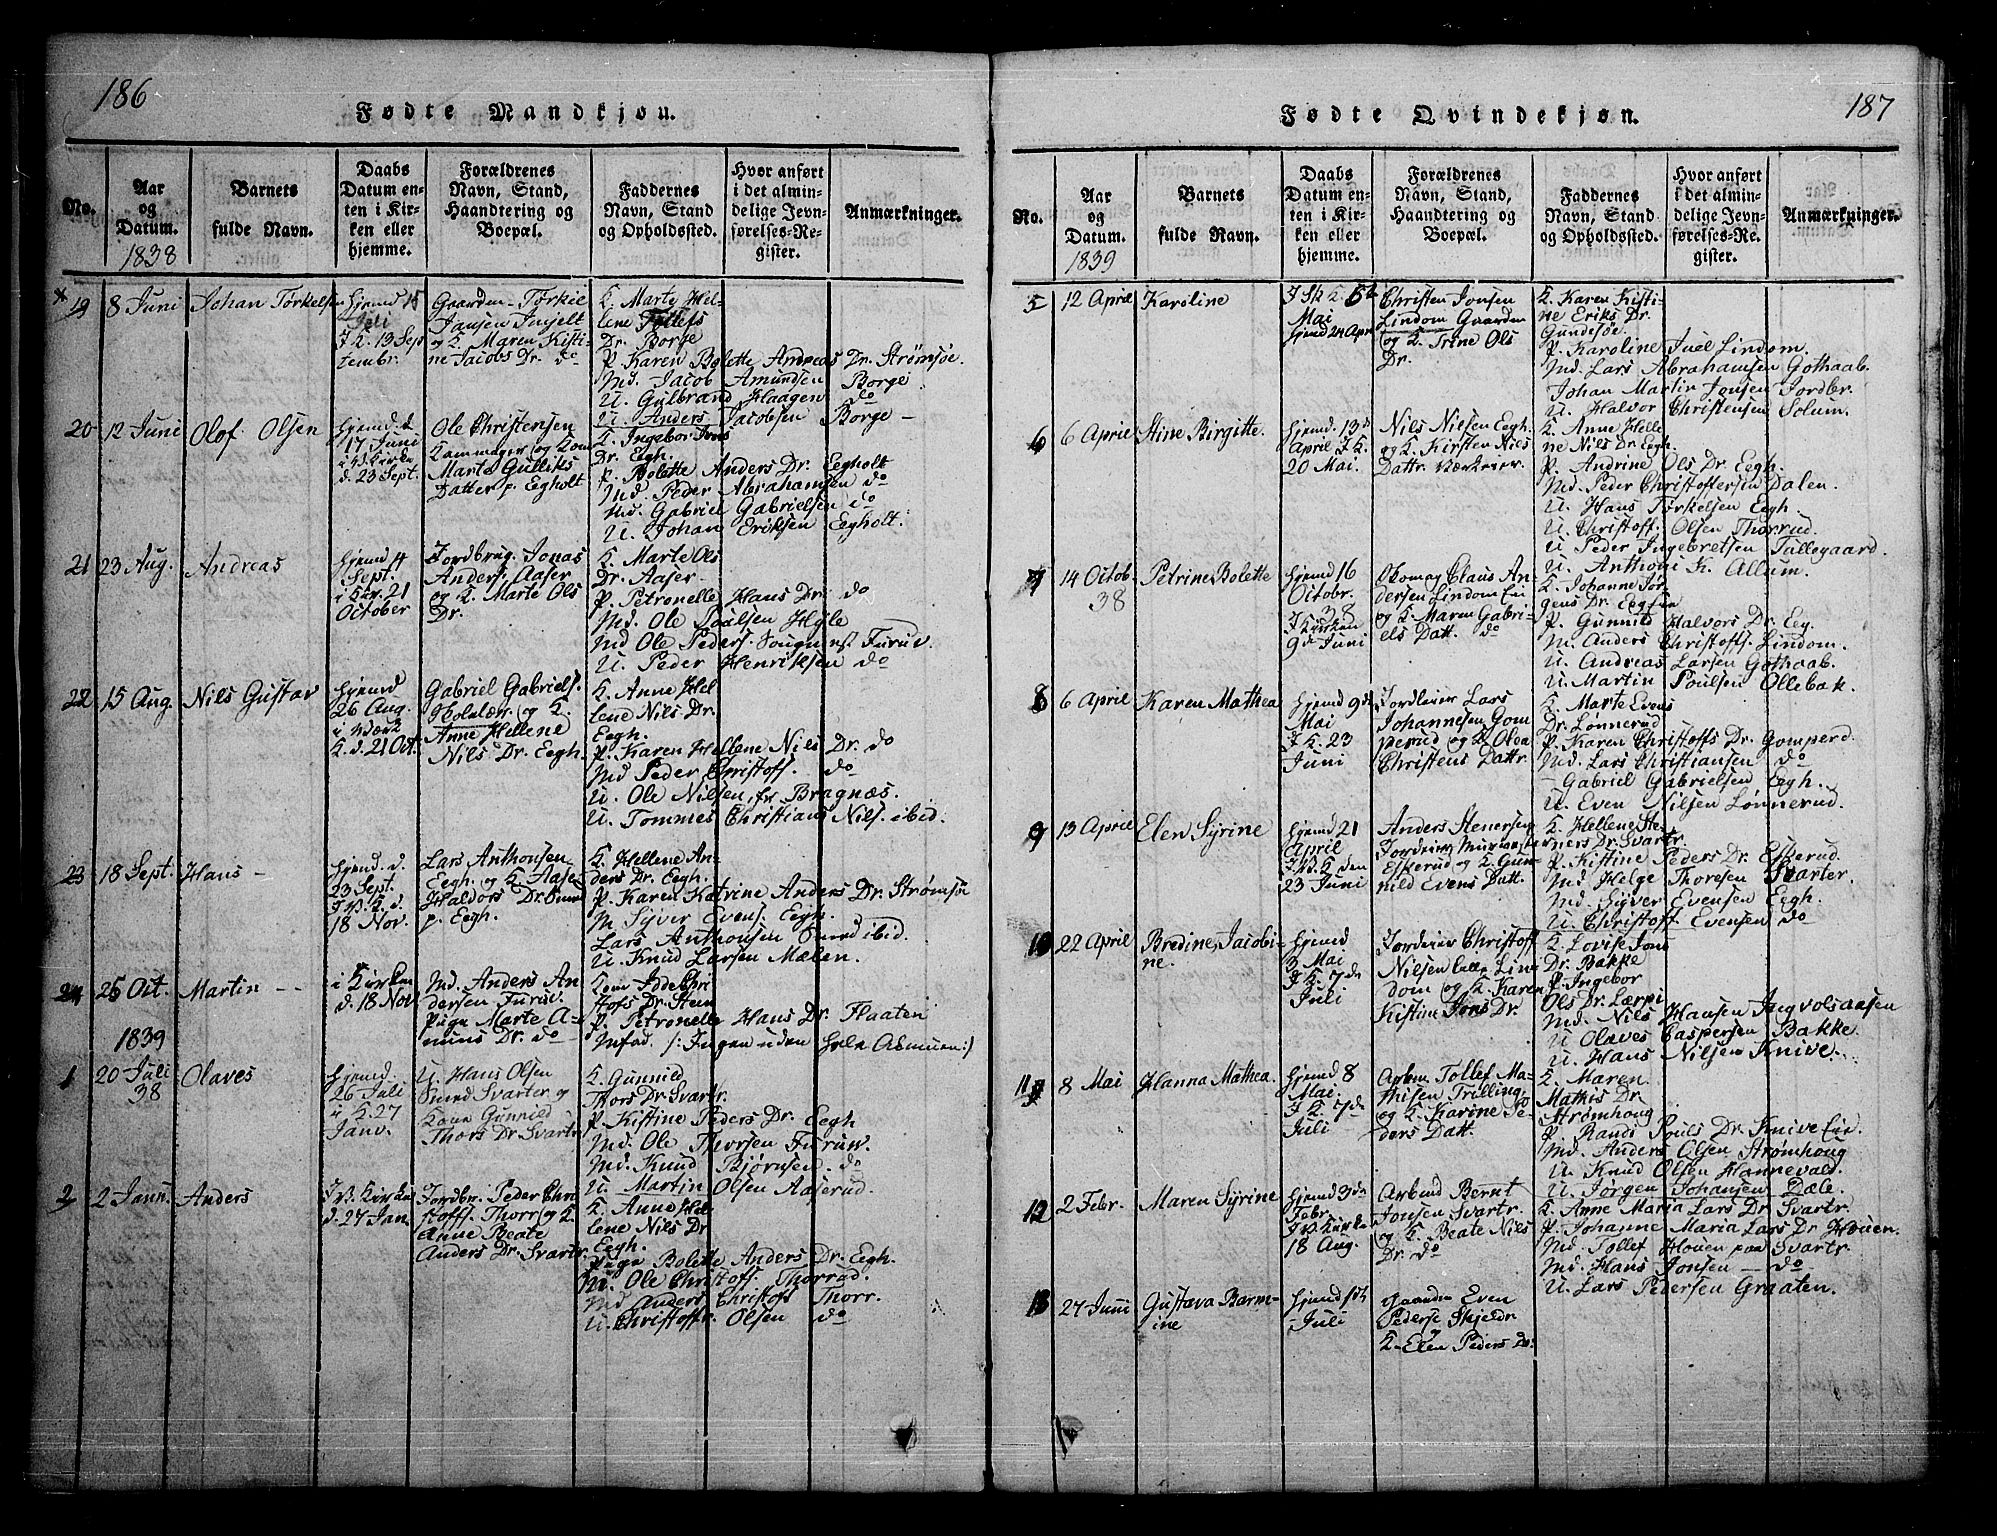 186
Fødte Mandkjøn.
No.
Aar
og
Datum.
1838
Barnets
fulde Navn.
Daabs
Datum en-
ten i Kir-
ken eller
hjemme.
Forældrenes
Navn, Stand,
Haandtering og
Boepæl.
Faddernes
Navn, Stand
og Opholdssted.
Hvor anført
i det almin-
delige Jevn-
førelses-Re-
gister.
Anmærkninger.
19
8 Juni
Johan Torkelsen
hjemd 15
Juli
I K. 13 Sep
tembr.
Gaarden Torkil
Jansen
og K. Maren Kisti-
ne Jacobs Dr. do
K. Marte Hel-
lene Tollefs
Dr. Borge
P. Karen Bolette Andreas Dr. Strømsøe
Md. Jacob Amundsen Borge
U. Gulbrand Haagen do
U. Anders Jacobsen Borge -
20
12 Juni
Olof Olsen
hjemd d
17 Juni
i Kirke
d. 23 Sept.
Ole Christensen
og Kone
Marte Gulliks
Datter p. Egholt
K. Ingebor Jons
Dr. Egh.
P. Bolette Anders Dr. Eegholt
Md. Peder Abrahamsen do
Md. Gabriel Gabrielsen do
U. Johan Eriksen Eegholt.
21
23 Aug.
Andreas
hjemd 4
Sept.
i Kir. 21
October
Jordbrug. Jonas
Anders. Aaser
og K. Marte Ols
Dr.
K. Marte Ols
Dr. Aaser-
P. Petronelle Hans Dr. do
Md. Ole Poulsen Hyle
Md Ole Peders. Furuv.
U. Peder Henriksen do
22
15 Aug.
Nils Gustav
hjemd
26 Aug.
K. d. 21 Oct.
Gabriel Gabriels.
og K.
Anne Hellene
Nils Dr. Eegh.
K. Anne Hel
lene Nils Dr.
Eegh.
P. Karen Hellene Nils Dr. do
Md Peder Christoff. do
U. Ole Nilsen, fr. Bragnæs.
U. Tommes Christians Nils. ibid.
23
18 Sept.
Hans -
hjemd. d.
23 Sept.
I K. d.
18 Nov.
Lars Anthonsen
Eegh. og K. Aase
Haldors Dr.
p. Eegh.
K. Hellene An-
ders Dr. Eegh.
P. Karen Katrine Anders Dr. Strømsøe
M Syver Evens. Eegh.
Lars Anthonsen Smed ibid.
U. Knud Larsen Mælen.
24
25 Oct.
Martin - -
i Kirken
d. 18 Nov
Md. Anders An
dersen Furuv.
Piga Marte A-
muns Dr. do
Kone
tofs Dr.
P. Petronelle Hans Dr. Flaaten
1839
1
20 Juli
38
Olaves
hjemd.
26 Juli
i K. 27
Janv.
U. Hans Olsen
Smed Svarter og
Kone Gunnild
Thors Dr. Svartr
K. Gunnild
Thors Dr. Svartr.
P. Kistine Peders Dr. Eegh
Md. Ole Thorsen Furuv.
Md. Knud Bjørnsen. do
U. Martin Olsen Aaserud.
2
2 Jann.
Anders
I Kirke
d. 27 Jan.
Jordbr. Peder Chri
stoff. Thorr og K.
Anne Beate
Anders Dr. Svartr.
K. Anne Hel-
lene Nils Dr
Eegh.
Piga Bolette Anders Dr. Eegh.
M. Ole Christoff. Thorrud.
Md Anders Christof Thorr.
U. Christoffr. Olsen do
187
Fødte Qvindekjøn.
No.
Aar
og
Datum.
1839
Barnets
fulde Navn.
Daabs
Datum en-
ten i Kir-
ken eller
hjemme.
Forældrenes
Navn, Stand,
Haandtering og
Boepæl.
Faddernes
Navn, Stand
og Opholdssted.
Hvor anført
i det almin-
delige Jevn-
førelses-Re.
gister.
Anmærkninger.
5
12 April
Karoline
Mai
hjemd 24 Apr
Christen Jonsen
Lindom Gaarden
og K. Trine Ols
Dr.
K. Karen Kisti-
ne Eriks Dr.
Gundesøe.
P. Karoline Juel Lindom
Md. Lars Abrahamsen Gothaab.
Johan Martin Jonsen Jordbr.
U. Halvor Christensen Solum.
6
6 April
Stine Birgitte.
hjemd. 13 d
April I K.
20 Mai.
Nils Nilsen Eegh.
og K. Kirsten Nils
Dattr.
K. Anne Helle
ne Nils Dr. Eegh
P. Andrine Ols Dr. Eegh.
Md. Peder Christoffersen Dalen.
U. Hans Torkelsen Eegh.
U. Christoff. Olsen Thorrud.
U. Peder Ingebretsen Tallegaard.
U. Anthoni K. Allum.
7
14 Octob.
38
Petrine Bolette
hjemd 16
Octobr.
38
I Kirken
9 d Juni
Claus An
dersen Lindom Eie
og K. Maren Gabri-
els Datt. do
K. Johanne Jør
gens Dr.
P. Gunnild Halvors Dr. Eeg.
M. Anders Christoffs. Lindom.
U. Andreas Larsen Gothaab.
U. Martin Poulsen Ollebak.
8
6 April
Karen Mathea
hjemd 9 de
Mai
I K. 23
Juni
Jordleier Lars
Johannesen Gom
perud og K. Olea
Christens Dattr
K. Marte Evens
Dr. Lønnerud
P. Karen Christoffs Dr. Gomperd
Md. Lars Christiansen do
- Gabriel Gabrielsen Eegh.
U. Even Nilsen Lønnerud.
9
13 April
Elen Syrine
hjemd 21
April
I K den
23 Juni
Anders Stenersen
Eskerud og K. Gun
nild Evens Datt.
K. Hellene Ste-
ners Dr. Svartr.
P. Kistine Peders Dr. Eskerud
Md. Helge Thoresen Svarter.
Md. Syver Evensen Eegh.
U. Christoff Evensen do
10
22 April
Bredine Jacobi-
ne.
hjemd
3 Mai
I K. 7 de
Juli
Jordeier Christoff
Nilsen Lin
dom og K. Karen
Kistine Jons Dr.
K. Lovise Jons
Dr. Bakke
P. Ingebor
Ols Dr.
Md. Nils Hansen Ingvolsaasen
U. Olaves Caspersen Bakke
U. Hans Nilsen Knive.
11
8 Mai
Hanna Mathea.
hjemd 8
Mai
I K. 7 de
Juli
Arbm. Tollef Ma-
thisen Trilling
og K. Karine Pe
ders Datt.
K. Maren
Mathis Dr
Strømhoug
P. Randi Pouls Dr. Knive Eie.
Md. Anders Olsen Strømhoug
U. Knud Olsen Hannevald.
U. Jørgen Johansen Dæle.
12
2 Febr.
Maren Syrine
hjemd 3 de
Febr.
I Kirke
18 Aug.
Arbmd Bernt
Jonsen Svartr.
og K. Beate Nils
Dr. do
K. Anne Maria Lars Dr Svartr.
P. Johanne Maria Lars Dr Houen.
Md. Tollef Houen paa Svartr.
Md. Hans Jonsen - do
U. Lars Pedersen Graaten.
13
27 Juni
Gustava Barm-
ine
hjemd
Juli
Gaardm Even
Pederse Skjeldr
K - Elen Peders D.